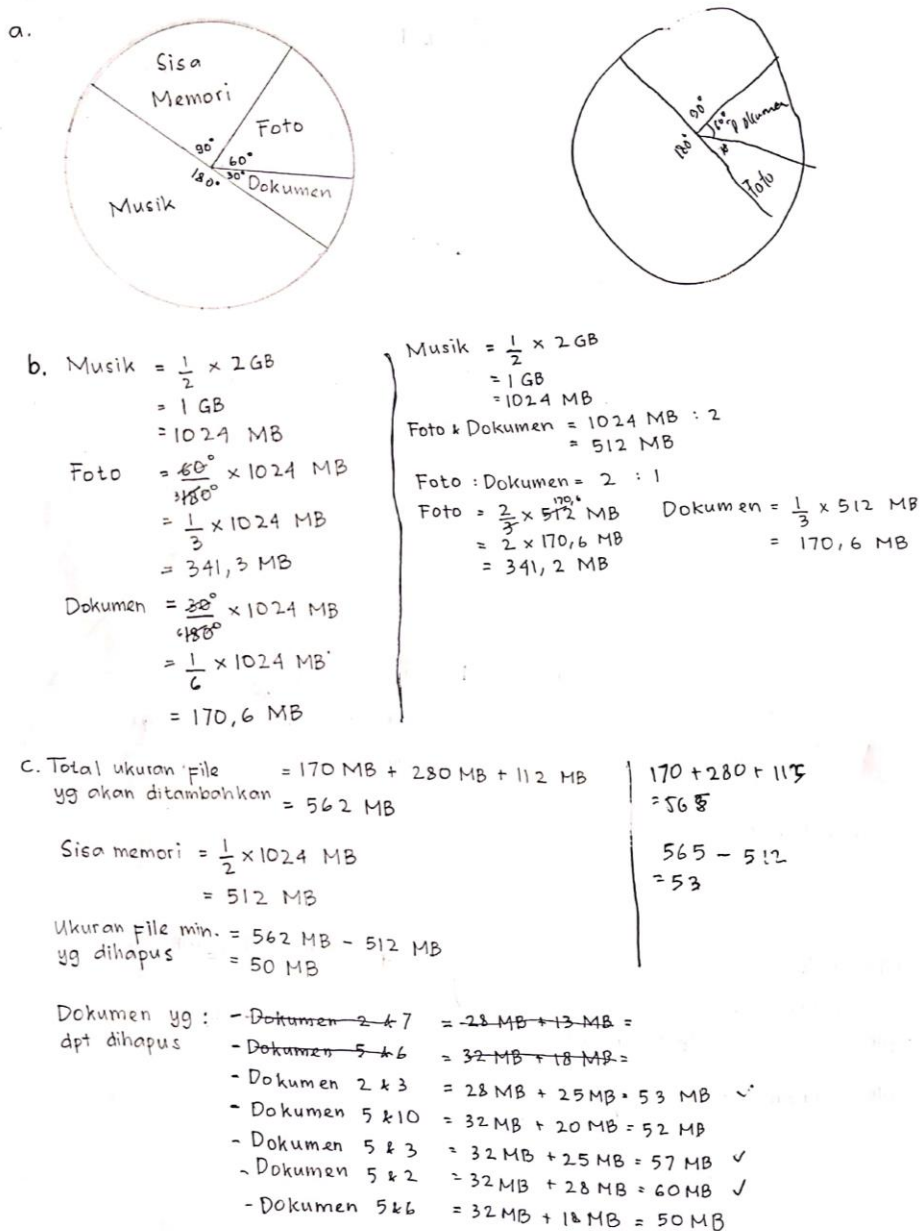 a.
Sisa
Memori
Foto
90°
60°
180°
30°
Dokumen
Musik
90°
60°
Dokumen
180°
Foto
b. Musik = 1/2 × 2 GB
= 1 GB
= 1024 MB
Foto = 60°/180° 3 × 1024 MB
= 1/3 × 1024 MB
= 341,3 MB
Dokumen = 30°/180° 6 × 1024 MB
= 1/6 × 1024 MB
= 170,6 MB
Musik = 1/2 × 2 GB
= 1 GB
= 1024 MB
Foto & Dokumen = 1024 MB : 2
= 512 MB
Foto : Dokumen = 2 : 1
Foto = 2/3 × 512 170,6 MB
= 2 × 170,6 MB
= 341,2 MB
Dokumen = 1/3 × 512 MB
= 170,6 MB
c. Total ukuran file = 170 MB + 280 MB + 112 MB
yg akan ditambahkan = 562 MB
Sisa memori = 1/2 × 1024 MB
= 512 MB
Ukuran file min. = 562 MB - 512 MB
yg dihapus = 50 MB
170 + 280 + 115
= 565
565 - 512
= 53
Dokumen yg : - Dokumen 2 & 7 = 28 MB + 13 MB =
dpt dihapus - Dokumen 5 & 6 = 32 MB + 18 MB =
- Dokumen 2 & 3 = 28 MB + 25 MB = 53 MB ✓
- Dokumen 5 & 10 = 32 MB + 20 MB = 52 MB
- Dokumen 5 & 3 = 32 MB + 25 MB = 57 MB ✓
- Dokumen 5 & 2 = 32 MB + 28 MB = 60 MB ✓
- Dokumen 5 & 6 = 32 MB + 18 MB = 50 MB